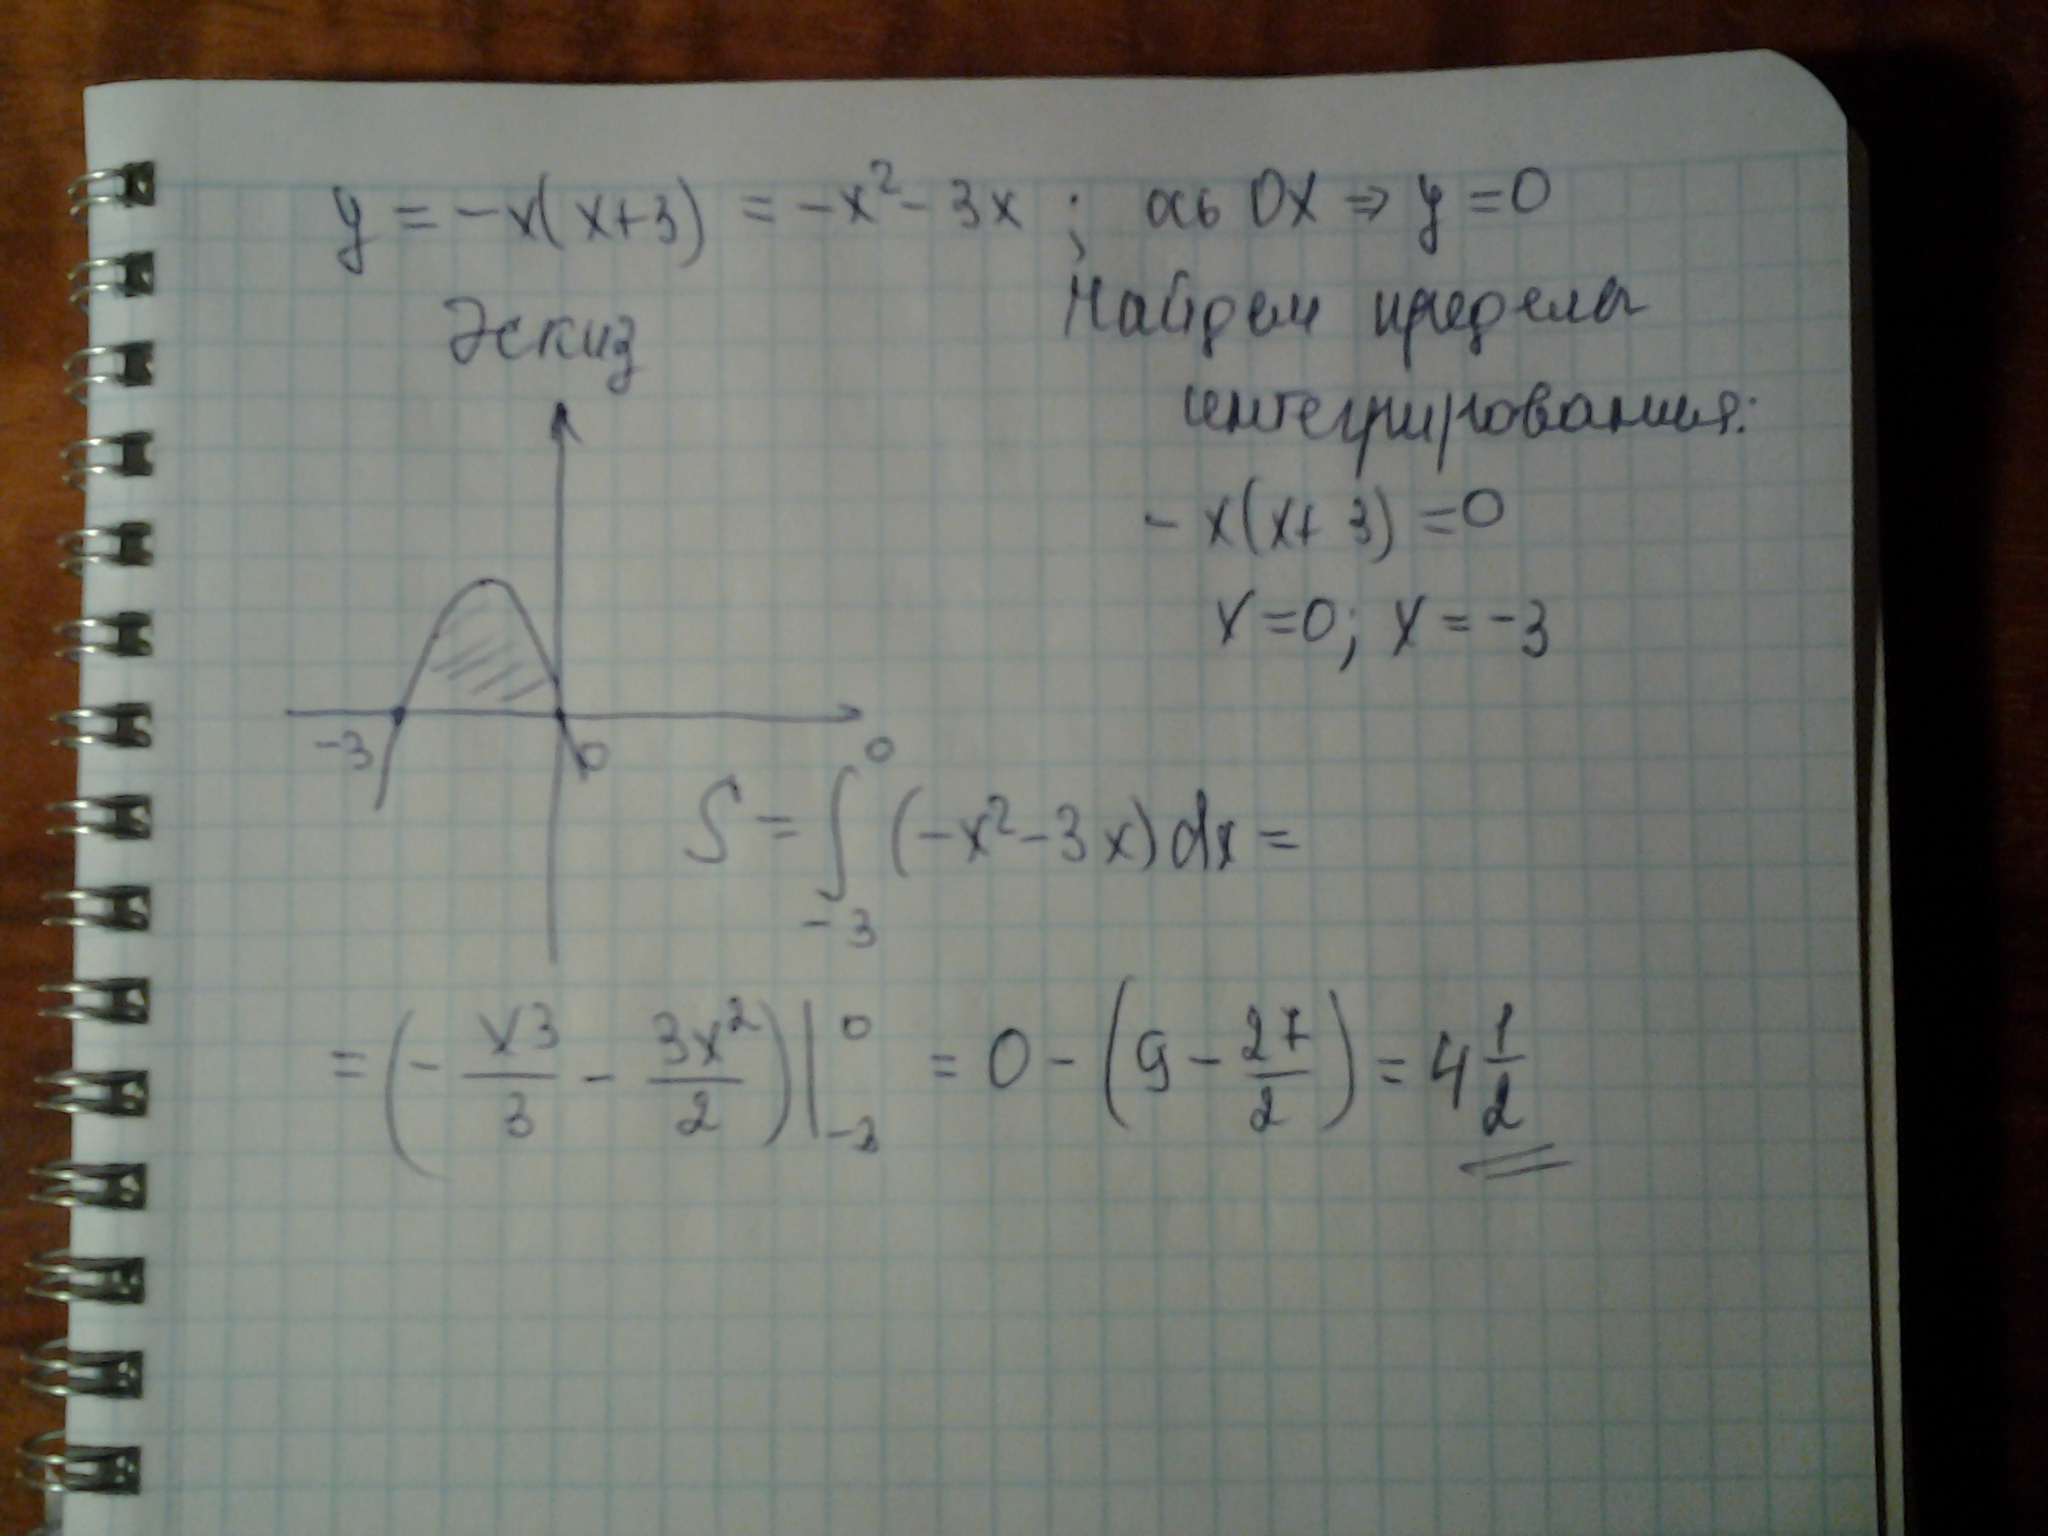 y = -x(x+3) = -x² - 3x ; ось OX ⇒ y = 0
Эскиз
Найдем пределы
интегрирования:
-x(x+3) = 0
x = 0; x = -3
-3 0
S = ∫₋₃⁰ (-x² - 3x) dx =
= (- x3/3 - 3x²/2) |₋₃⁰ = 0 - (9 - 27/2) = 4 1/2